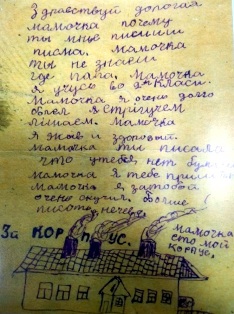 Здравствуй дорогая
мамочка почему
ты мне пишиш
писма. Мамочка
ты не знаеш
где папа. Мамочка
я учусь во 2 класи.
Мамочка я очень долго
болел я стригучем
лишаем. Мамочка
я жив и здоровый.
мамочка ты писала
что утебя нет бумаги
мамочка я тебе пришлю
Мамочка я затобой
очено скучил. больше
писать нечево
За КОРПУС.
мамочка
ето мой
корпус.